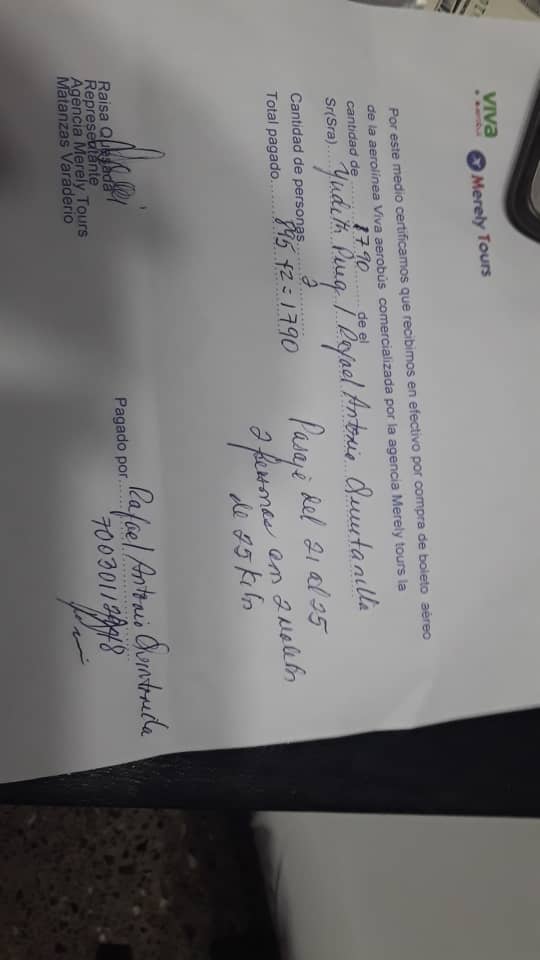 viva
aerobus
Merely Tours
Por este medio certificamos que recibimos en efectivo por compra de boleto aéreo
de la aerolínea Viva aerobús comercializada por la agencia Merely tours la
cantidad de 1790 de el
Sr(Sra) Yudith Puig / Rafael Antonio Quintanilla
Cantidad de personas 2
Total pagado 895 +2 = 1790
Pasaje del 21 al 25
2 personas con 2 maletas
de 25 kilo
Raisa Quesada
Representante
Agencia Merely Tours
Matanzas Varaderio
Pagado por Rafael Antonio Quintanilla